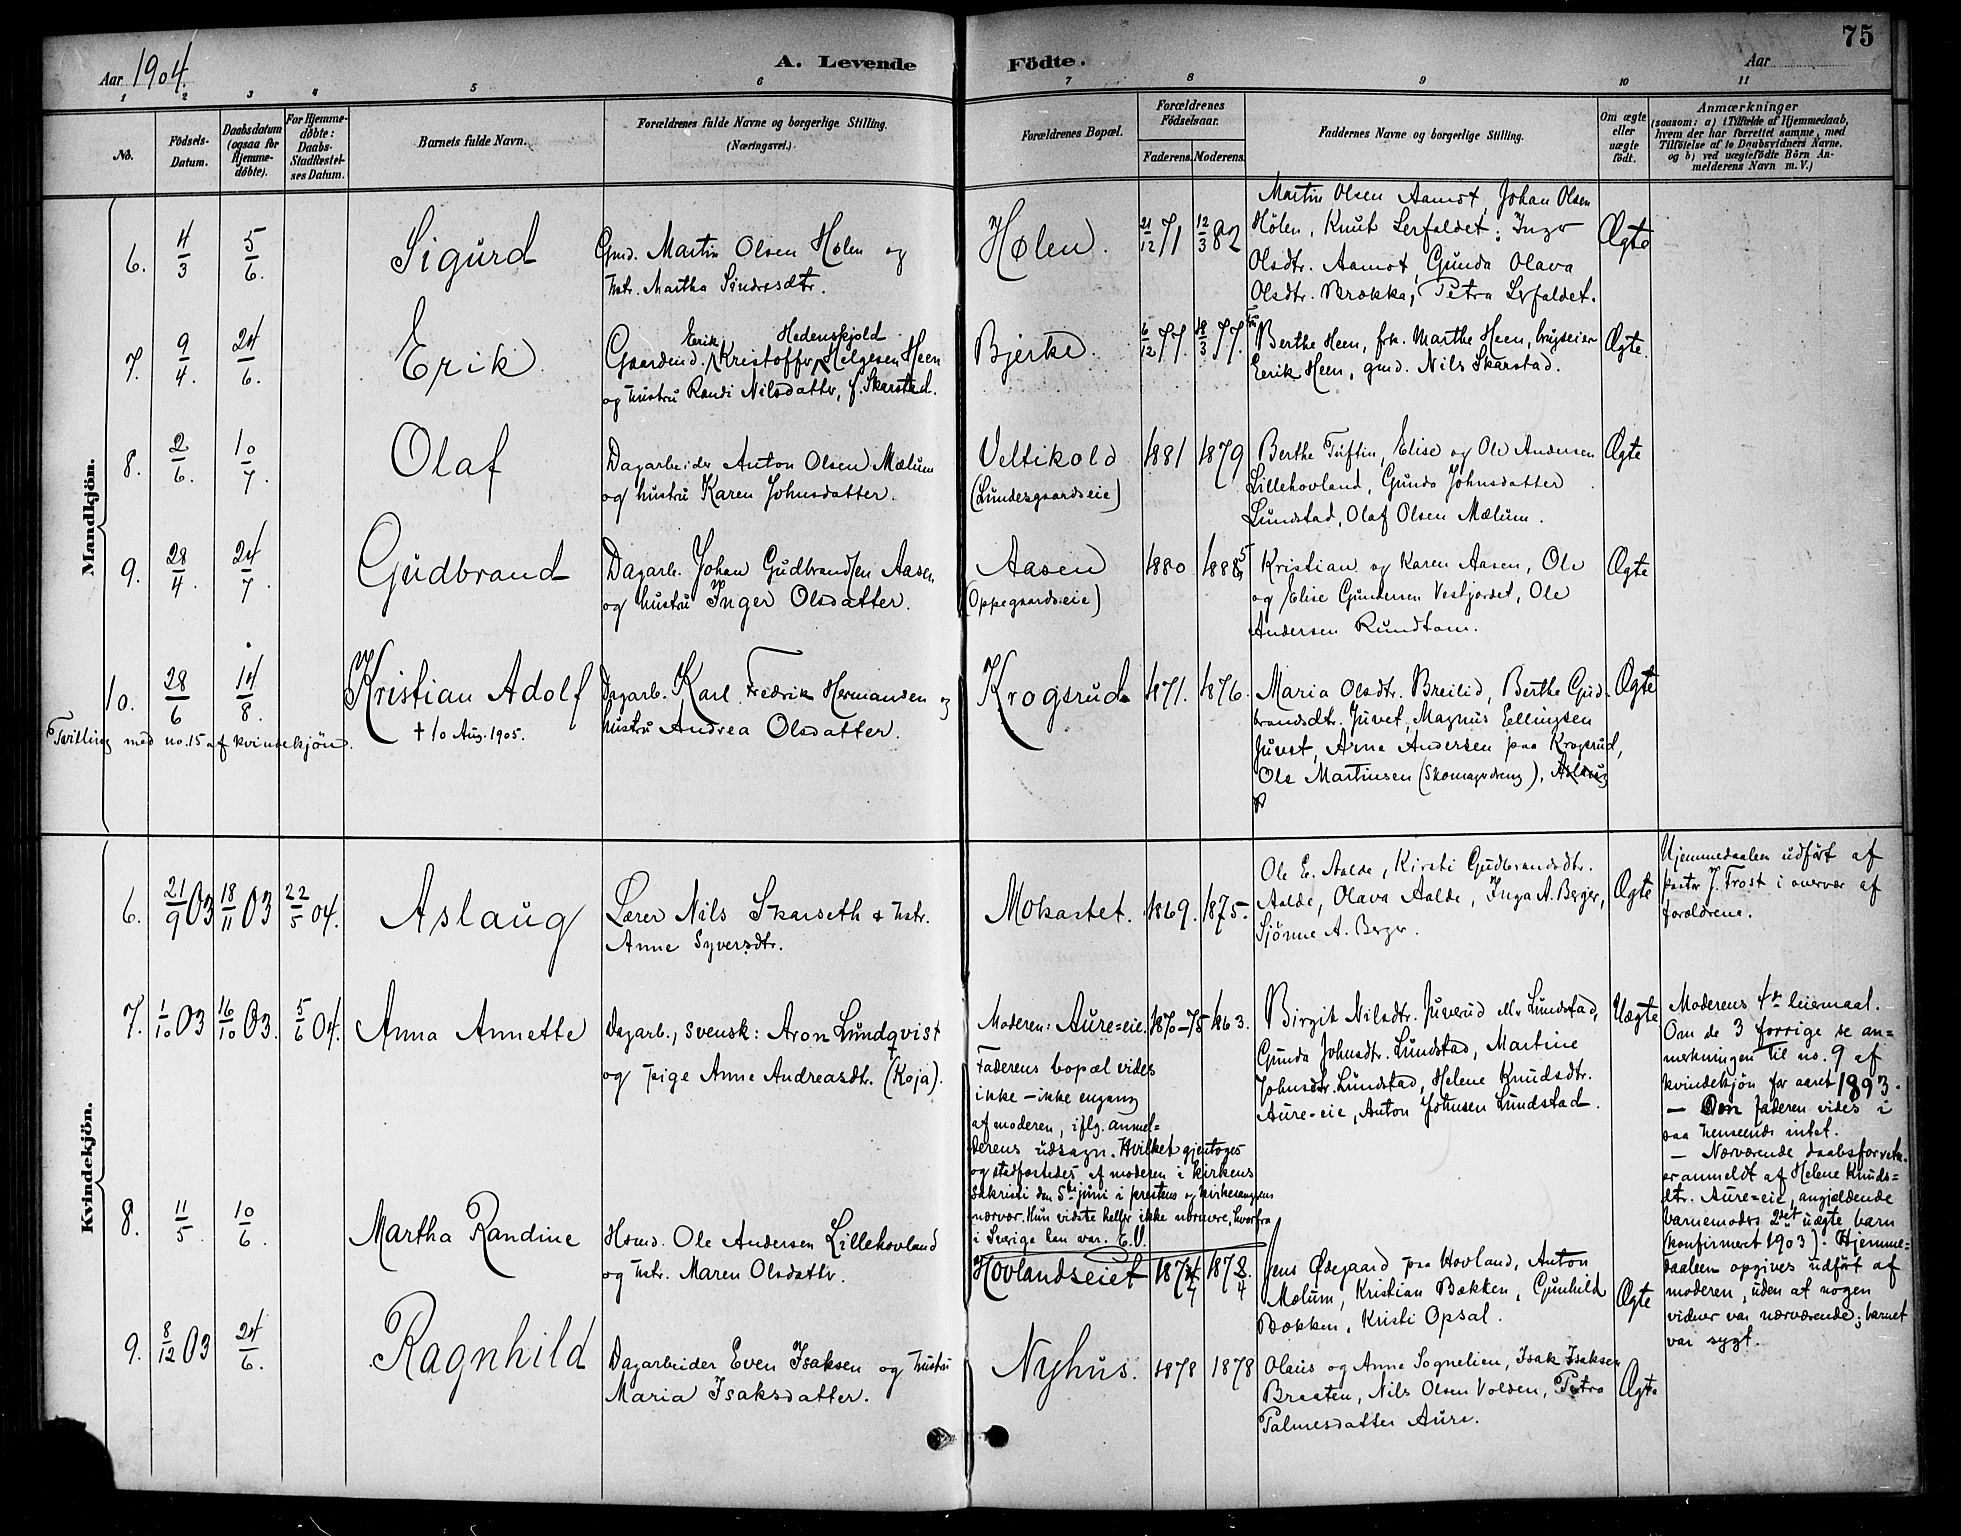 75
Aar 1904.
A. Levende Födte.
Aar
1 2 3 4 5 6 7 8 9 10 11
No.
Födsels-Datum.
Daabsdatum (ogsaa for Hjemme-døbte).
For Hjemme-døbte: Daabs-Stadfæstel-ses Datum.
Barnets fulde Navn.
Forældrenes fulde Navne og borgerlige Stilling.
(Næringsvei.)
Forældrenes Bopæl.
Forældrenes Födselsaar.
Faderens. Moderens.
Faddernes Navne og borgerlige Stilling.
Om ægte eller uægte födt.
Anmærkninger
(saasom: a) i Tilfælde af Hjemmedaab,
hvem der har forrettet samme, med
Tilföielse af to Daabsvidners Navne,
og b) ved uægtefödte Börn An-
melderens Navn m. V.)
Mandkjön.
6. 4/3 5/6. Sigurd
Gmd. Martin Olsen Hølen og
hstr. Martha Sindresdtr.
Hølen. 21/12 71 12/3 82
Martin Olsen Aamot, Johan Olsen
Hølen, Knut Lerfaldet; Inger
Olsdtr. Aamot, Gunda Olava
Olsdtr. Brække, Petra Lerfaldet.
Ægte
7. 9/4. 24/6. Erik
Erik Hedenskjold
Gaardmd. Kristoffer Helgesen Heen
og hustru Randi Nilsdatter, f. Skarstad.
Bjerke. 6/12 77. 18/3 77.
Fru Berthe Heen, frk. Marthe Heen, brugseier
Eerik Heen, gmd. Nils Skarstad.
Ægte.
8. 2/6. 10/7. Olaf
Dagarbeider Anton Olsen Mælum
og hustru Karen Johnsdatter.
Veltikold
(Lundesgaardseie)
1881 1879
Berthe Tuftin, Elise og Ole Andersen
Lillehovland, Gunda Johnsdatter
Lundstad, Olaf Olsen Mælum.
Ægte
9. 28/4. 24/7. Gudbrand
Dagarb. Johan Gudbrandsen Aasen,
og hustru Inger Olsdatter.
Aasen
(Oppegaardseie)
1880 1885
Kristian og Karen Aasen, Ole
og Elise Gundersen Vestjordet, Ole
Andersen Rundtom.
Ægte
10. 28/6 14/8. Kristian Adolf
† 10 Aug. 1905.
Tvilling med no. 15 af kvindekjön.
Dagarb. Karl Fredrik Hermansen og
hustru Andrea Olsdatter.
Krogsrud 1871. 1876.
Maria Olsdtr. Breilid, Berthe Gud-
brandsdtr. Juvet, Magnus Ellingsen
Juvet, Arne Andersen paa Krogsrud,
Ole Martinsen (Skomagerdreng), Aslaug
Ægte
Kvindekjön.
6. 21/9 03 18/11 03 22/5 04. Aslaug
Lærer Nils Skarseth & hstr.
Anne Syversdtr.
Mokastet. 1869. 1875.
Ole E. Aalde, Kirsti Gudbrandsdtr.
Aalde, Olava Aalde, Inga A. Berger,
Sjønne A. Berger.
Ægte
Hjemmedaaben udført af
pastor J. Frost i overvær af
forældrene.
7. 1/10 03 16/10 03. 5/6 04. Anna Annette
Dagarb., svensk: Aron Lundqvist
og pige Anne Andreasdtr. (Koja).
Moderen: Aure=eie.
Faderens bopæl vides
ikke – ikke engang
af moderen, iflg. anmel=
derens udsagn. Hvilket gjentoges
og stadfæstedes af moderen i kirkens
sakristi den 5te juni i prestens og kirkesangerens
nærvær. Hun vidste heller ikke nærmere, hvorfra
i Sverige han var. E.V.
1870–75 1863.
Birgit Nilsdtr. Juverud ell. Lundstad,
Gunda Johnsdtr. Lundstad, Martine
Johnsdtr. Lundstad, Helene Knudsdtr.
Aure-eie, Anton Johnsen Lundstad.
Uægte
Moderens 4de leiemaal.
Om de 3 forrige se an=
mærkningen til no. 9 af
kvindekjön for aaret 1893.
— Om faderen vides i
saa henseende intet.
— Nærværende daabsforretn.
er anmeldt af Helene Knuds=
dtr. Aure=eie, angjældende
barnemoders 2det uægte barn
(konfirmeret 1903). Hjemme=
daaben opgives udført af
moderen, uden at nogen
vidner var nærværende; barnet
var sygt.
8. 11/5. 10/6. Martha Randine
Hsmd. Ole Andersen Lillehovland
og hstr. Maren Olsdatter.
Hovlandseiet 1874 1878.
Jens Ødegaard paa Hovland, Anton
Mælum, Kristian Bækken, Gunhild
Bækken, Kristi Opsal.
Ægte
9. 8/12 03 24/6. Ragnhild
Dagarbeider Even Isaksen og hustru
Maria Isaksdatter.
Nyhus. 1878 1878
Olaus og Anne Sognelien, Isak Isaksen
Braaten, Nils Olsen Volden, Petra
Palmesdatter Aure.
Ægte